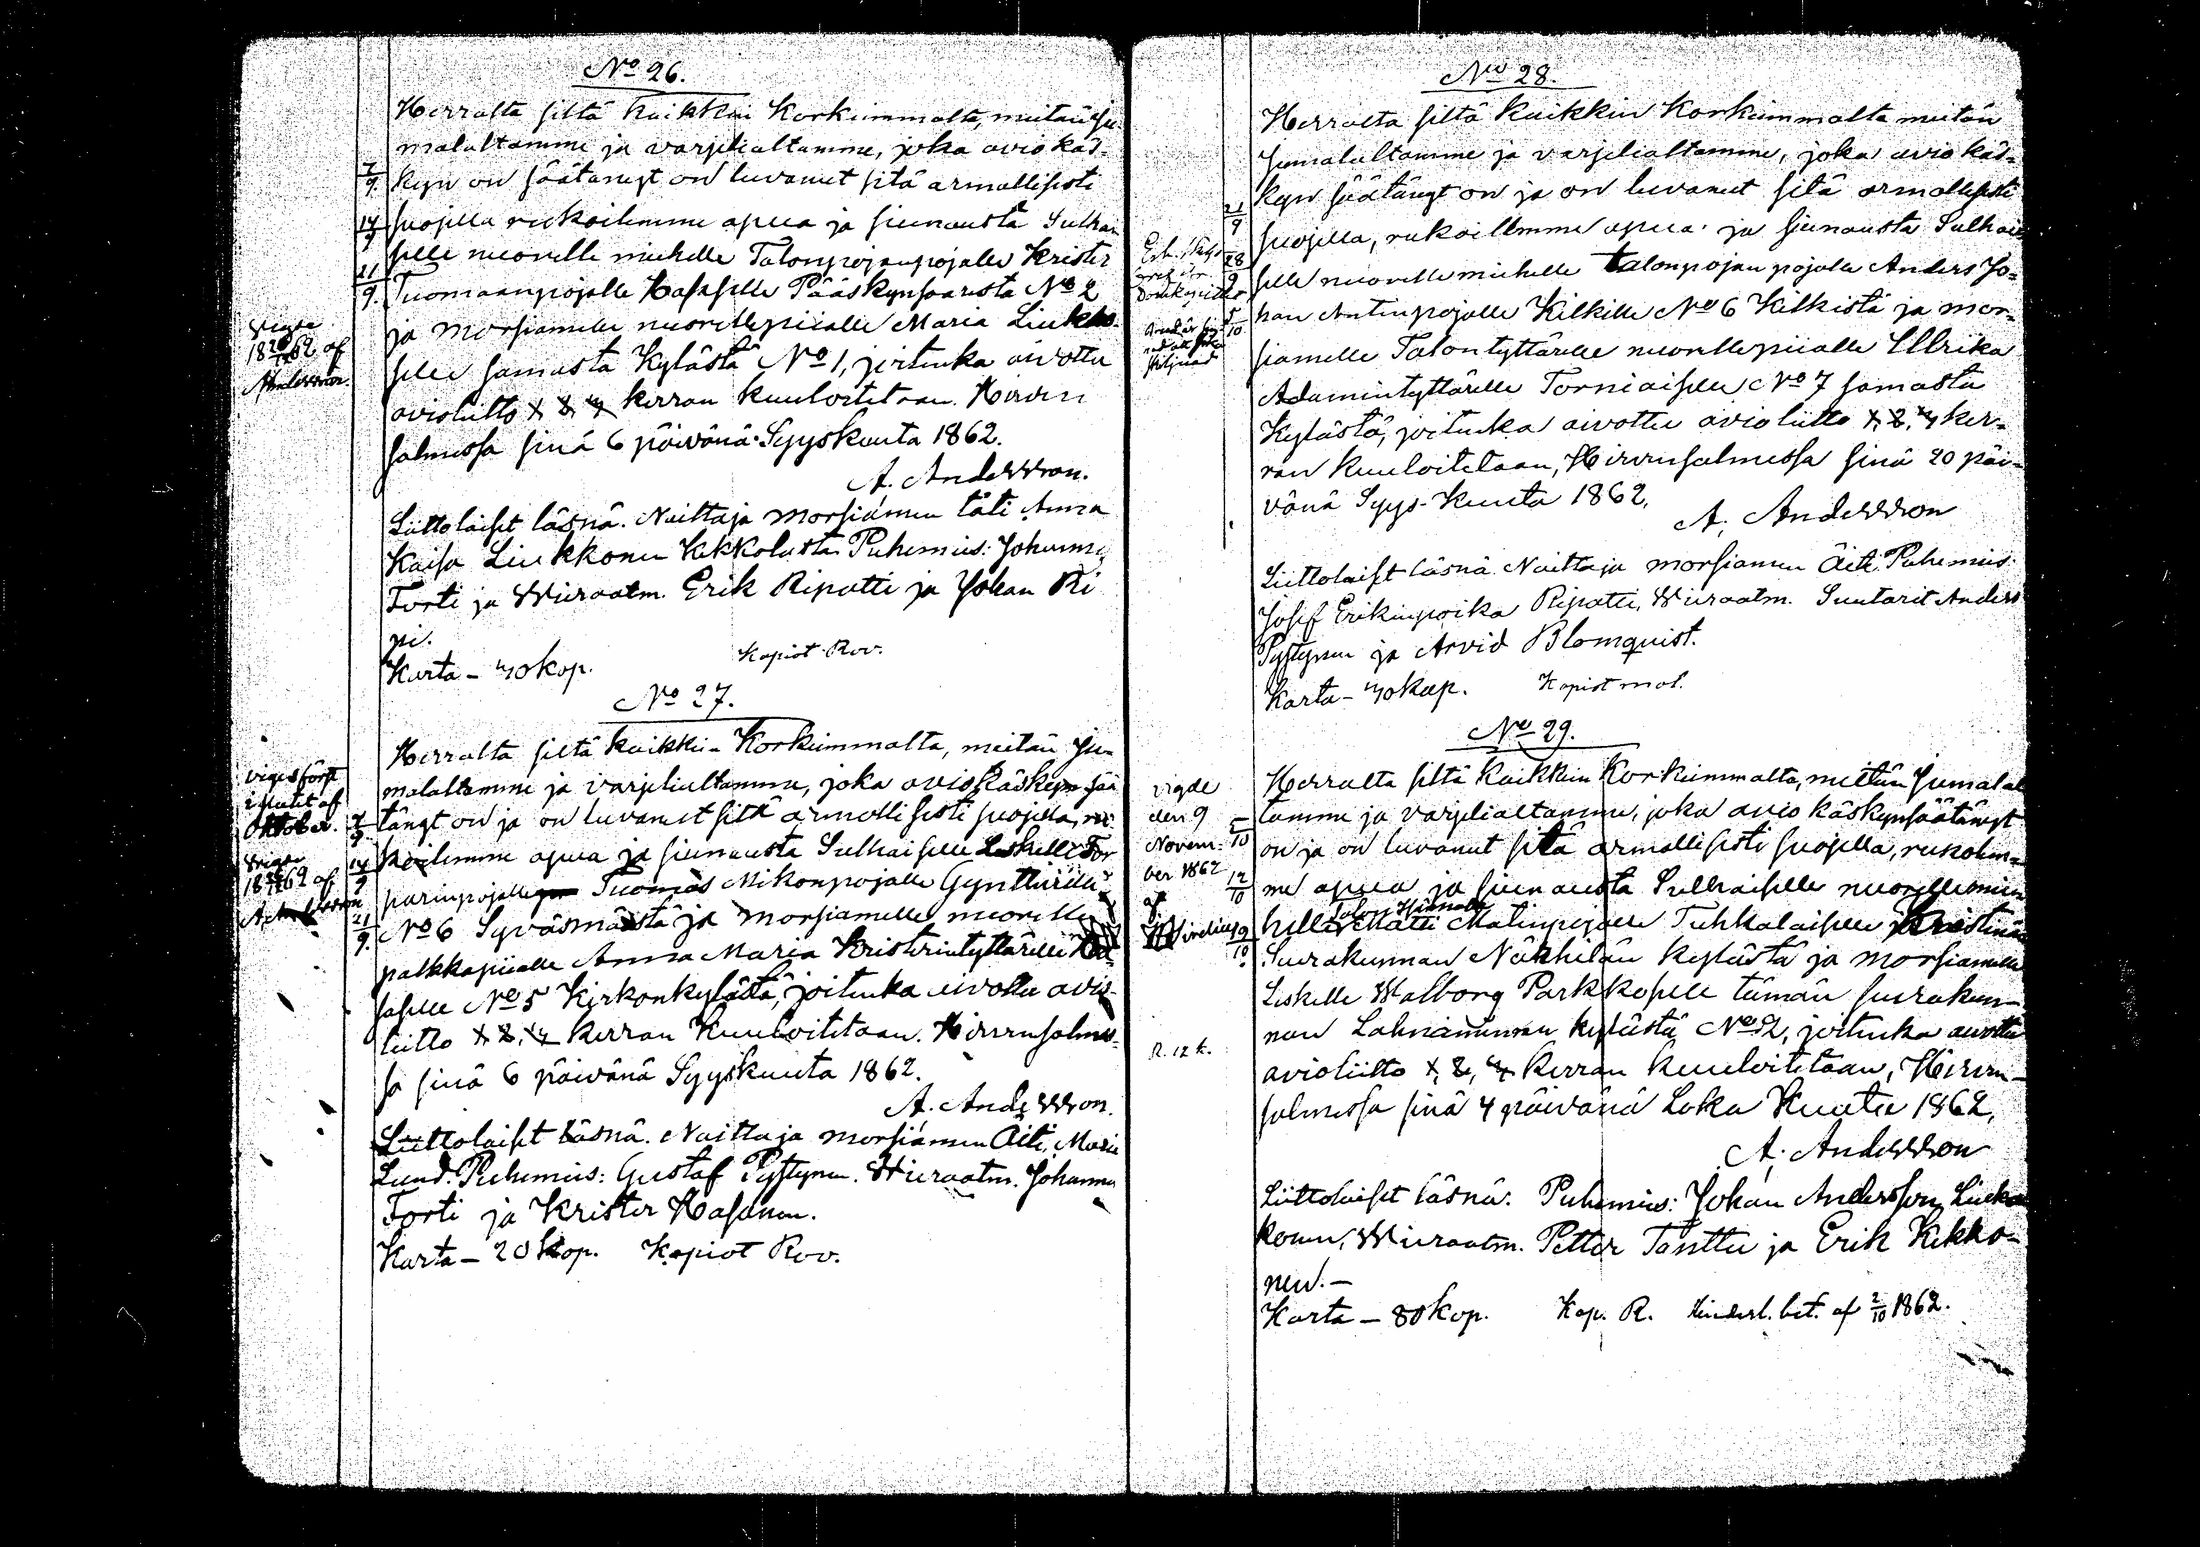 No 26.
Herralta siltä kaikkein Korkeimmalta, meitän Ju-
malaltamme ja varjelialtamme, joka avio käs-
7/9 kyn on säätänyt on luvannut sitä armollisesti
14/9 suojella rukoilemme apua ja siunausta Sulhai
selle nuorelle miehelle Talonpojanpojalle Krister
21/9. Tuomaanpojalle Hasaselle Pääskynsaaresta No 2
ja Morsiamelle nuorellepiialle Maria Liukko-
selle samasta Kylästä No 1, joitenka aivottu
avioliitto 1, 2, 3 kerran kuuloitetaan. Hirven
salmessa sinä 6 päivänä Syyskuuta 1862.
A. Andersson.
vigde
18 62 af
Andersson.
Liittolaiset läsnä. Naittaja morsiamen täti Anna
Kaisa Liukkonen Kekkolasta Puhemies: Johannes
Torti ja Wieraatm. Erik Ripatti ja Johan Ri
pi.
Karta – 40 kop. Kopiot Rov.
No 27.
Herralta siltä kaikkein Korkeimmalta, meitän Ju-
malaltamme ja varjelialtamme, joka avio käskyn sää
7/9 tänyt on ja on luvannut sitä armollisesti suojella, ru-
14/9 koilemme apua ja siunausta Sulhaiselle Leskelle Tor
parinpojalle Tuomas Mikonpojalle Gynttärille
21/9. No 6 Syväsmäestä ja morsiamelle nuorelle
palkkapiialle Anna Maria Kristerintyttärelle Ha-
saselle No 5 Kirkonkylästä, joitenka aivottu avio-
liitto 1, 2, 3 kerran Kuuloitetaan. Hirvensalmes-
sa sinä 6 päivänä Syyskuuta 1862.
A. Andersson.
viges först
i slutet af
Oktober.
vigde
18 62 af
A. Andersson
Liittolaiset läsnä. Naittaja morsiamen Äiti, Maria
Lund. Puhemies: Gustaf Pystynen. Wieraatm. Johannes
Torti ja Krister Hasanen.
Karta – 20 kop. Kopiot Rov.
No 28.
Herralta siltä kaikkein Korkeimmalta meitän
Jumalaltamme ja varjelialtamme, joka avio käs-
kyn säätänyt on ja on luvannut sitä armollisesti
21/9 suojella, rukoillemme apua ja siunausta Sulhai-
28/9 selle nuorellemiehelle talonpojan pojalle Anders Jo-
5/10 han Antinpojalle Kilkille No 6 Kilkistä ja mor-
siamelle Talontyttärelle nuorellepiialle Ullrika
Adamintyttärelle Torniaiselle No 7 samasta
Kylästä, joitenka aivottu avioliitto 1, 2, 3 ker-
ran kuuloitetaan, Hirvensalmessa sinä 20 päi-
vänä Syys-Kuuta 1862.
A. Andersson
Liittolaiset läsnä. Naittaja morsiamen Äiti. Puhemies:
Josef Erikinpoika Ripatti, Wieraatm. Suutarit Anders
Pystynen ja Arvid Blomquist.
Karta – 40 kop. Kopiot mat.
No 29.
Herralta siltä kaikkein Korkeimmalta, meitän Jumalal
tamme ja varjelialtamme, joka avio käskyn säätänyt
5/10 on ja on luvannut sitä armollisesti suojella, rukoilem-
12/10 me apua ja siunausta Sulhaiselle nuorellemie-
19/10 helle Matti Matinpojalle Tuhkalaiselle Kristinän
Seurakunnan Närhilän kylästä ja morsiamelle
Leskelle Walborg Parkkoselle tämän seurakun-
nan Lahnaniemen kylästä No 2, joitenka aivottu
avioliitto 1, 2, 3 kerran kuuloitetaan, Hirven-
salmessa sinä 4 päivänä Loka Kuuta 1862.
A. Andersson
vigde
den 9
Novem-
ber 1862
af
R. 12 k.
Liittolaiset läsnä. Puhemies: Johan Andersson Liuk-
konen, Wieraatm. Petter Tanttu ja Erik Kekko-
nen. –
Karta – 80 kop. Kop. R. Hinderl. bet. af 2/10 1862.